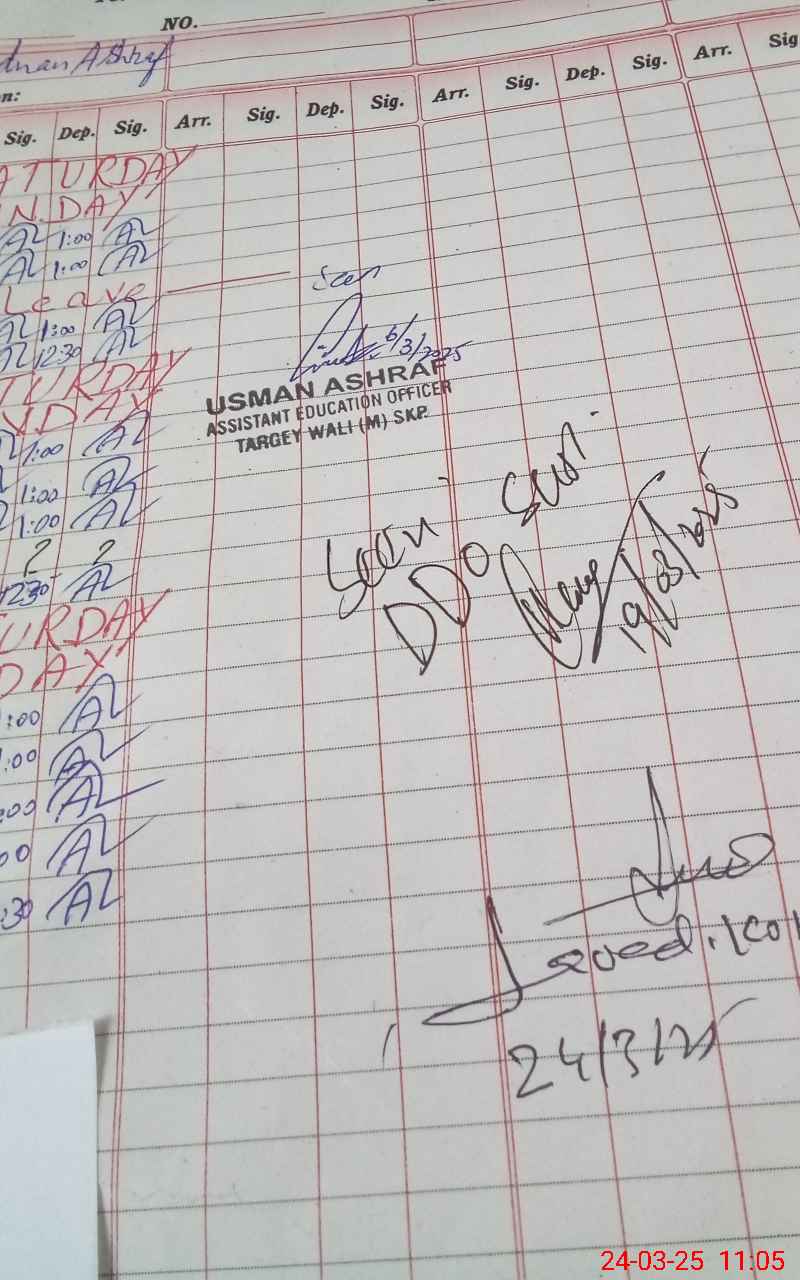 NO.
Ashraf
Sig. Dep. Sig. Arr. Sig. Dep. Sig. Arr. Sig. Dep. Sig. Arr. Sig
ATURDAY
N.DAY
AL 1:00 AL
AL 1:00 AL
Leave
1:00 AL
12:30 AL
TURDAY
DAY
1:00 AL
1:00 AL
1:00 AL
2 2
1230 AL
URDAY
DAY
:00 AL
:00 AL
:00 AL
00 AL
:30 AL
Seen
6/3/2025
USMAN ASHRAF
ASSISTANT EDUCATION OFFICER
TARGEY WALI (M) SKP.
Seen
DDO
19/03/2025
Javed
24/3/25
24-03-25 11:05